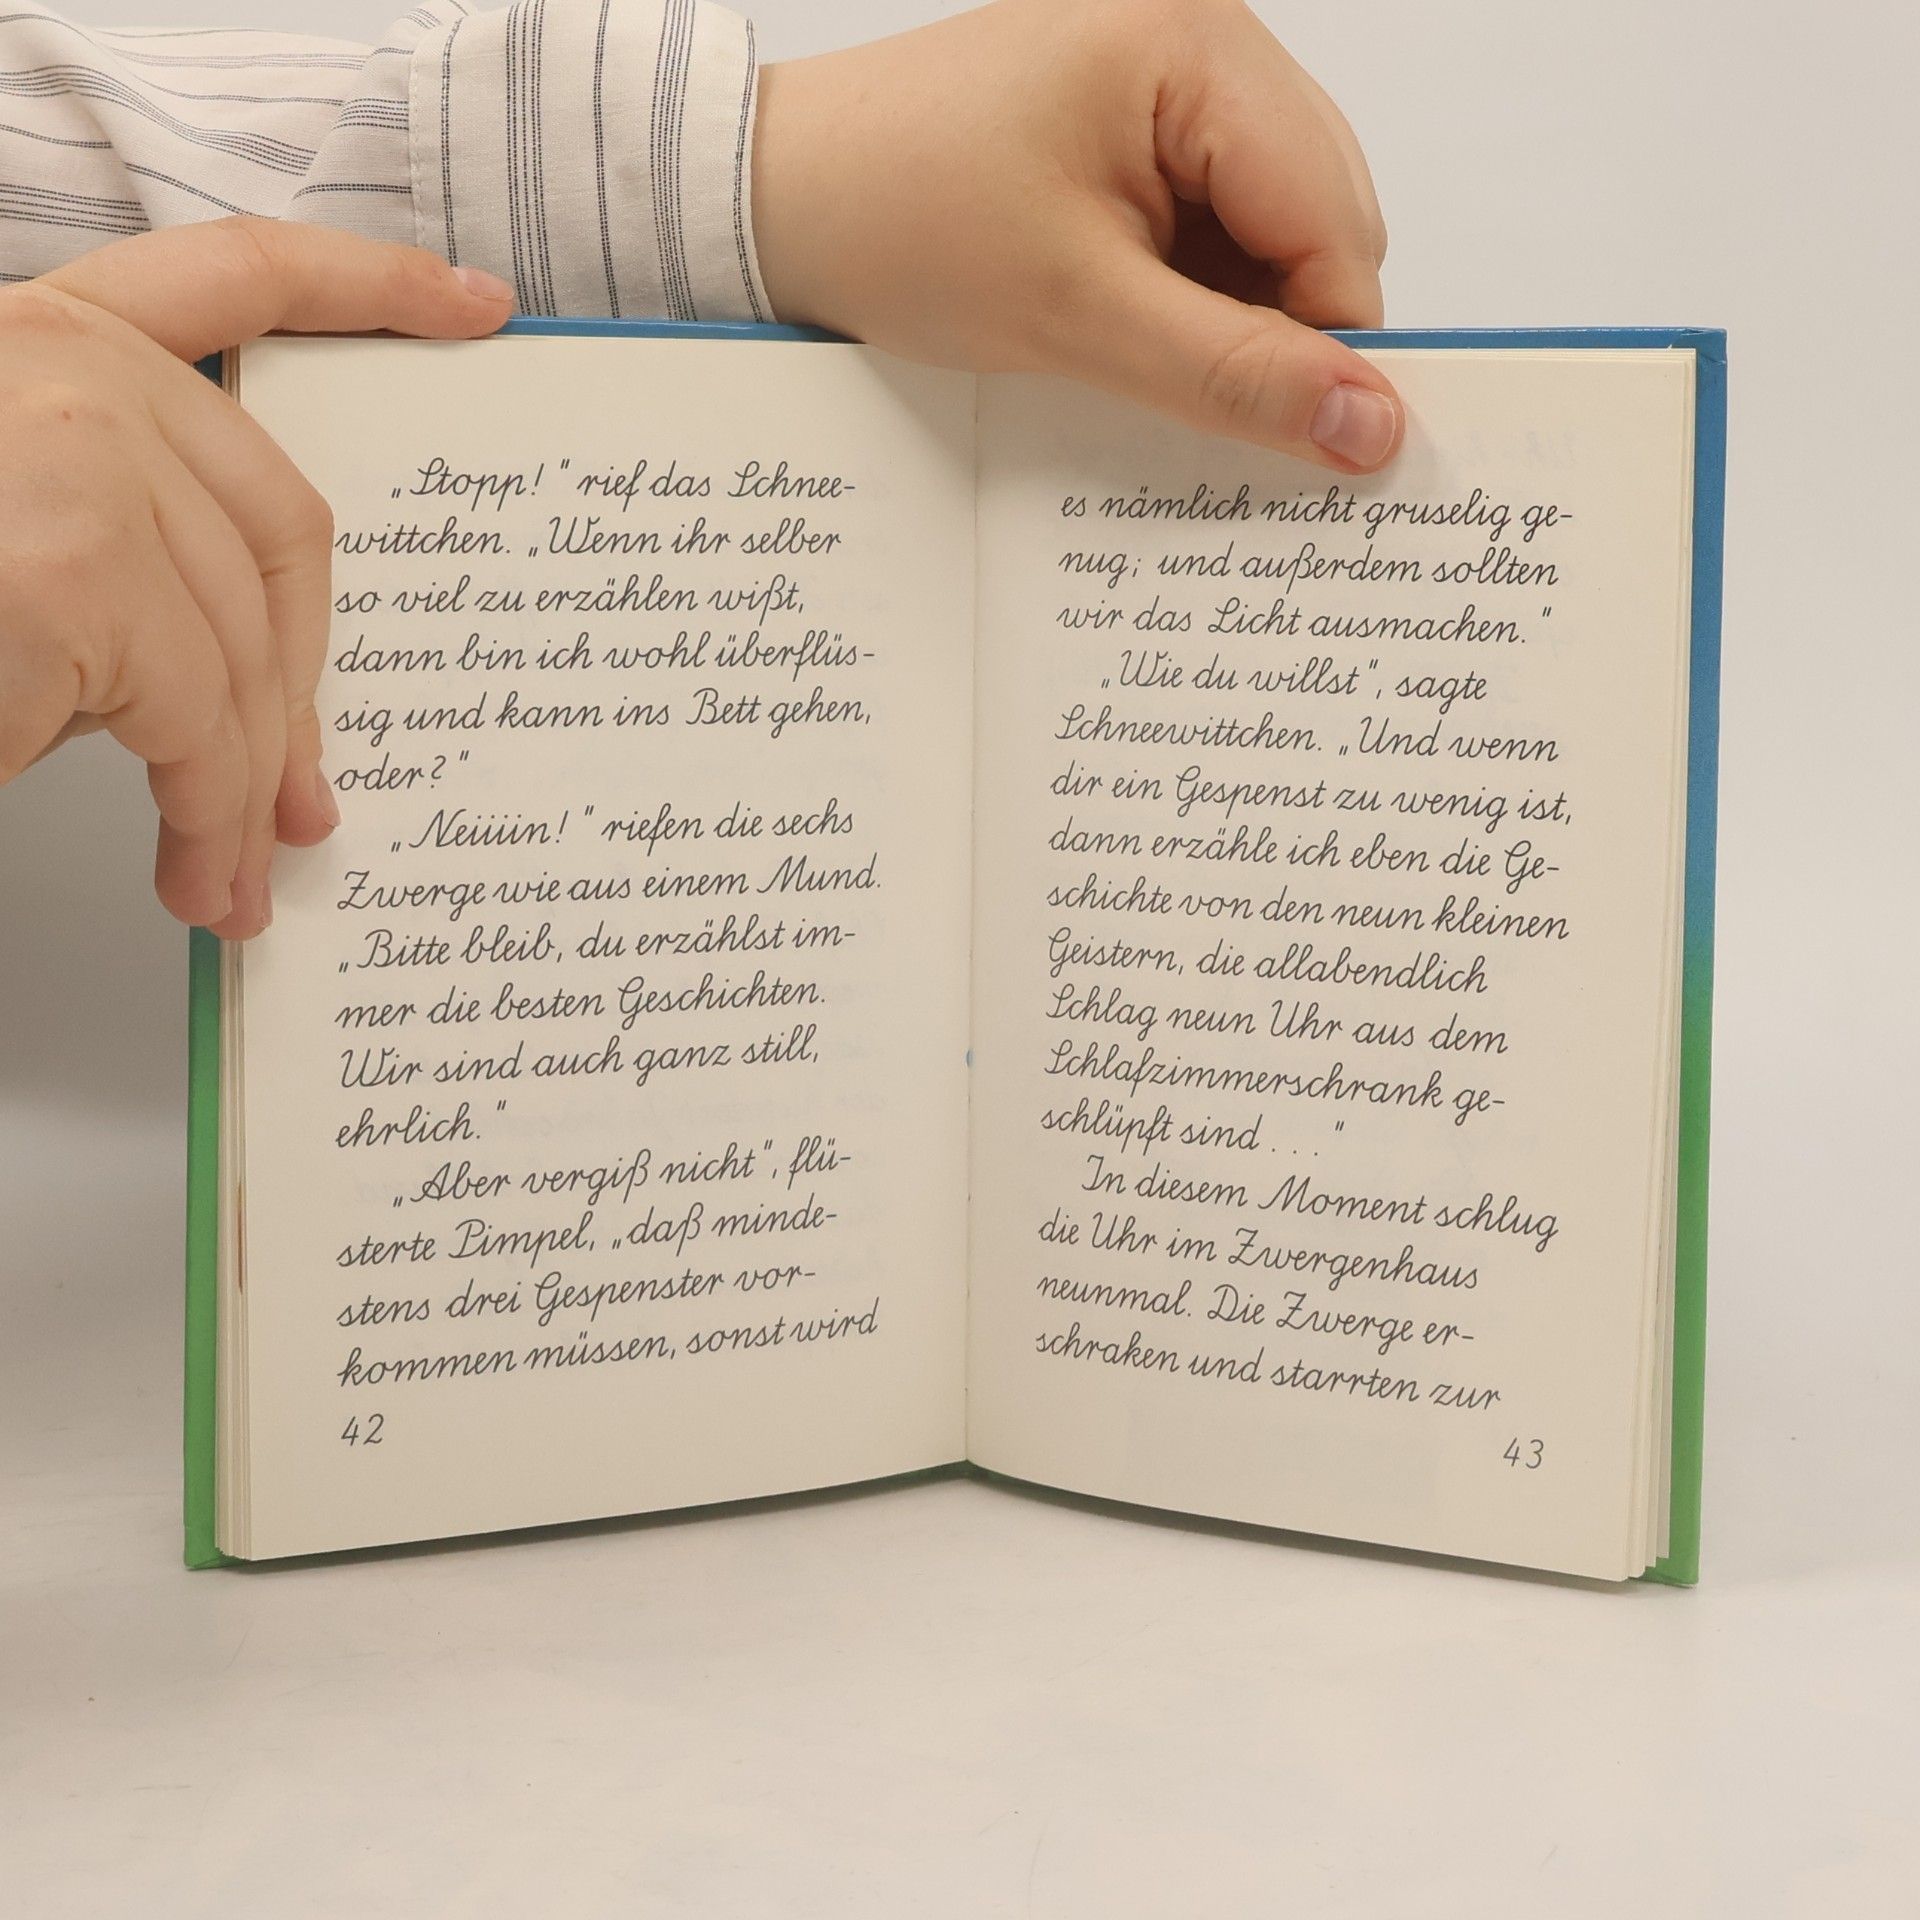 „Stopp!" rief das Schnee-
wittchen. „Wenn ihr selber
so viel zu erzählen wißt,
dann bin ich wohl überflüs-
sig und kann ins Bett gehen,
oder?"
„Neiiiin!" riefen die sechs
Zwerge wie aus einem Mund.
„Bitte bleib, du erzählst im-
mer die besten Geschichten.
Wir sind auch ganz still,
ehrlich."
„Aber vergiß nicht", flü-
sterte Pimpel, „daß minde-
stens drei Gespenster vor-
kommen müssen, sonst wird
42
es nämlich nicht gruselig ge-
nug; und außerdem sollten
wir das Licht ausmachen."
„Wie du willst", sagte
Schneewittchen. „Und wenn
dir ein Gespenst zu wenig ist,
dann erzähle ich eben die Ge-
schichte von den neun kleinen
Geistern, die allabendlich
Schlag neun Uhr aus dem
Schlafzimmerschrank ge-
schlüpft sind . . ."
In diesem Moment schlug
die Uhr im Zwergenhaus
neunmal. Die Zwerge er-
schraken und starrten zur
43